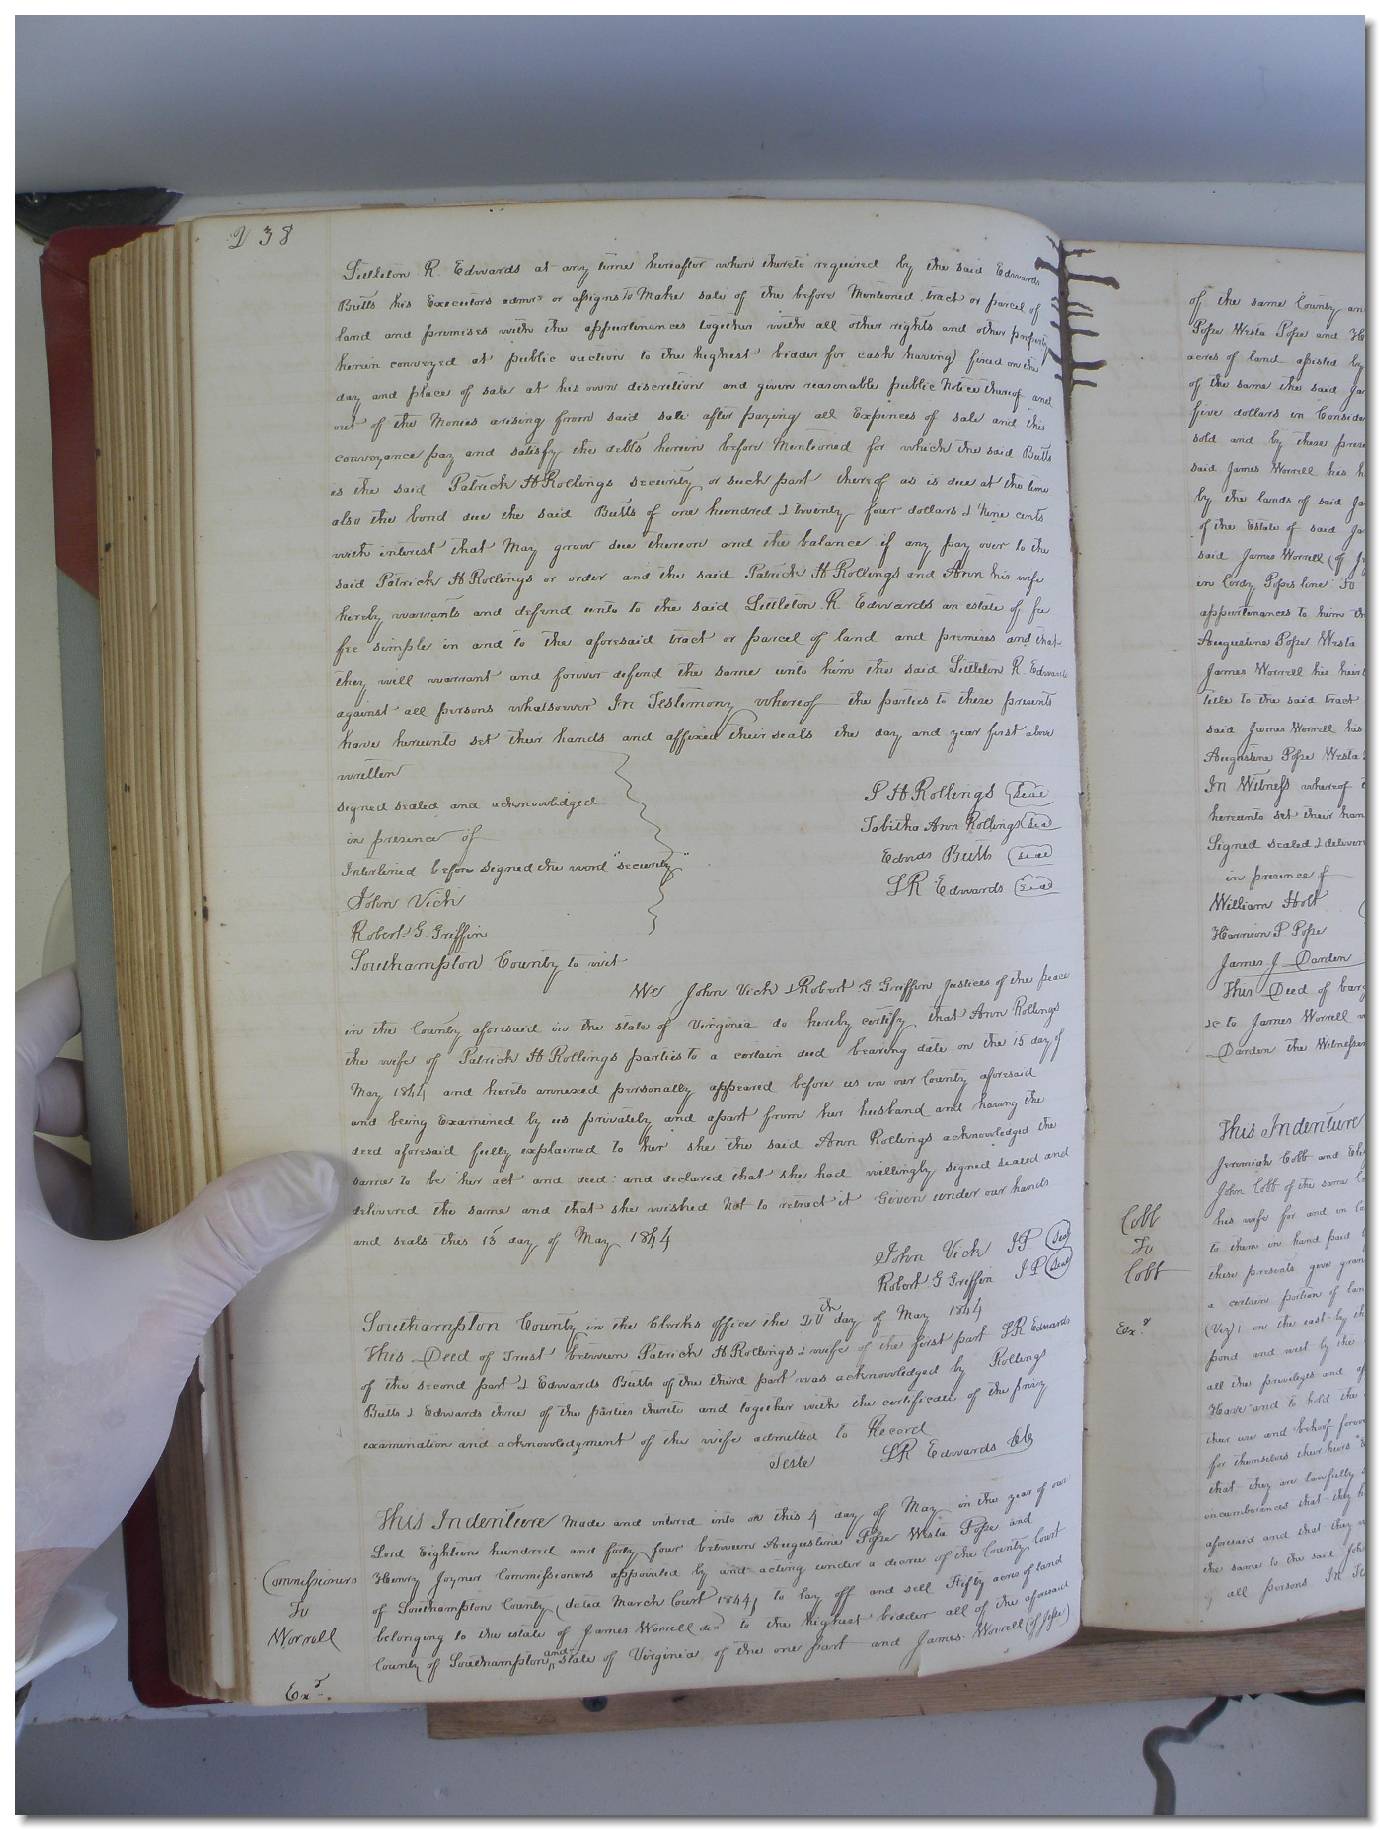 238
Littleton R. Edwards at any time hereafter when thereto required by the said Edwards
Butts his Executors admrs or assigns to Make sale of the before Mentioned tract or parcel of
land and premises with the appurtenances together with all other rights and other property
herein conveyed at public auction to the highest bidder for cash having fixed on the
day and place of sale at his own discretion and given reasonable public Notice thereof and
out of the Monies arising from said sale after paying all Expences of sale and this
conveyance pay and satisfy the debts herein before Mentioned for which the said Butts
is the said Patrick H Rollings security or such part thereof as is due at the time
also the bond due the said Butts of one hundred & twenty four dollars & Nine cents
with interest that May grow due thereon and the balance if any pay over to the
said Patrick H Rollings or order and the said Patrick H Rollings and Ann his wife
hereby warrants and defend unto to the said Littleton R. Edwards an estate of fu
fee simple in and to the aforesaid tract or parcel of land and premises and that
they will warrant and forever defend the same unto him the said Littleton R. Edwards
against all persons whatsoever In Testimony whereof the parties to these presents
have hereunto set their hands and affixed their seals the day and year first above
written
signed sealed and acknowledged
in presence of
Interlined before signed the word "security"
John Vick
Robert G. Griffin
P H Rollings Seal
Tabitha Ann Rollings Seal
Edwds Butts Seal
L R Edwards Seal
Southampton County to wit
We John Vick & Robert G. Griffin Justices of the peace
in the County aforesaid in the state of Virginia do hereby certify that Ann Rollings
the wife of Patrick H Rollings parties to a certain deed bearing date on the 15 day of
May 1844 and hereto annexed personally appeared before us in our County aforesaid
and being Examined by us privately and apart from her husband and having the
deed aforesaid fully explained to her she the said Ann Rollings acknowledged the
same to be her act and deed and declared that she had willingly signed sealed and
delivered the same and that she wished Not to retract it Given under our hands
and seals this 15 day of May 1844
John Vick J P Seal
Robert G Griffin J P Seal
Southampton County in the Clerks office the 20th day of May 1844
This Deed of Trust between Patrick H Rollings & wife of the first part L R Edwards
of the second part & Edwards Butts of the third part was acknowledged by Rollings
Butts & Edwards three of the parties thereto and together with the certificate of the privy
examination and acknowledgment of the wife admitted to Record
Teste L R Edwards Clk
Commissioners
To
Worrell
Exd.
This Indenture Made and entered into on this 4 day of May in the year of our
Lord Eighteen hundred and forty four between Augustine Pope Westa Pope and
Henry Joyner Commissioners appointed by and acting under a decree of the County Court
of Southampton County (dated March Court 1844) to lay off and sell Fifty acres of land
belonging to the estate of James Worrell decd to the highest bidder all of the aforesaid
County of Southampton and State of Virginia of the one part and James Worrell (of Jesse)
of the same County an
Pope Westa Pope and He
acres of land
of the same the said Ja
five dollars in Conside
sold and by these prese
said James Worrell his h
by the lands of said Ja
of the Estate of said Ja
said James Worrell (of J
in Popes line To
appurtenances to him th
Augustine Pope Westa
James Worrell his heirs
title to the said tract
said James Worrell his
Augustine Pope Westa
In Witness whereof
hereunto set their han
Signed sealed & deliver
in presence of
William Holt
Harrison P. Pope
James J. Darden
This Deed of barg
&c to James Worrell
Darden the Witnesses
Cobb
To
Cobb
Exd
This Indenture
Jeremiah Cobb and Eli
John Cobb of the same Co
his wife for and in Co
to them in hand paid
these presents give gran
a certain portion of lan
(Viz) on the east by th
pond and west by the
all the privileges and
Have and to hold the
their use and behoof forev
for themselves their heirs
that they are lawfully
incumberances that they h
aforesaid and that they
the same to the said Joh
of all persons In